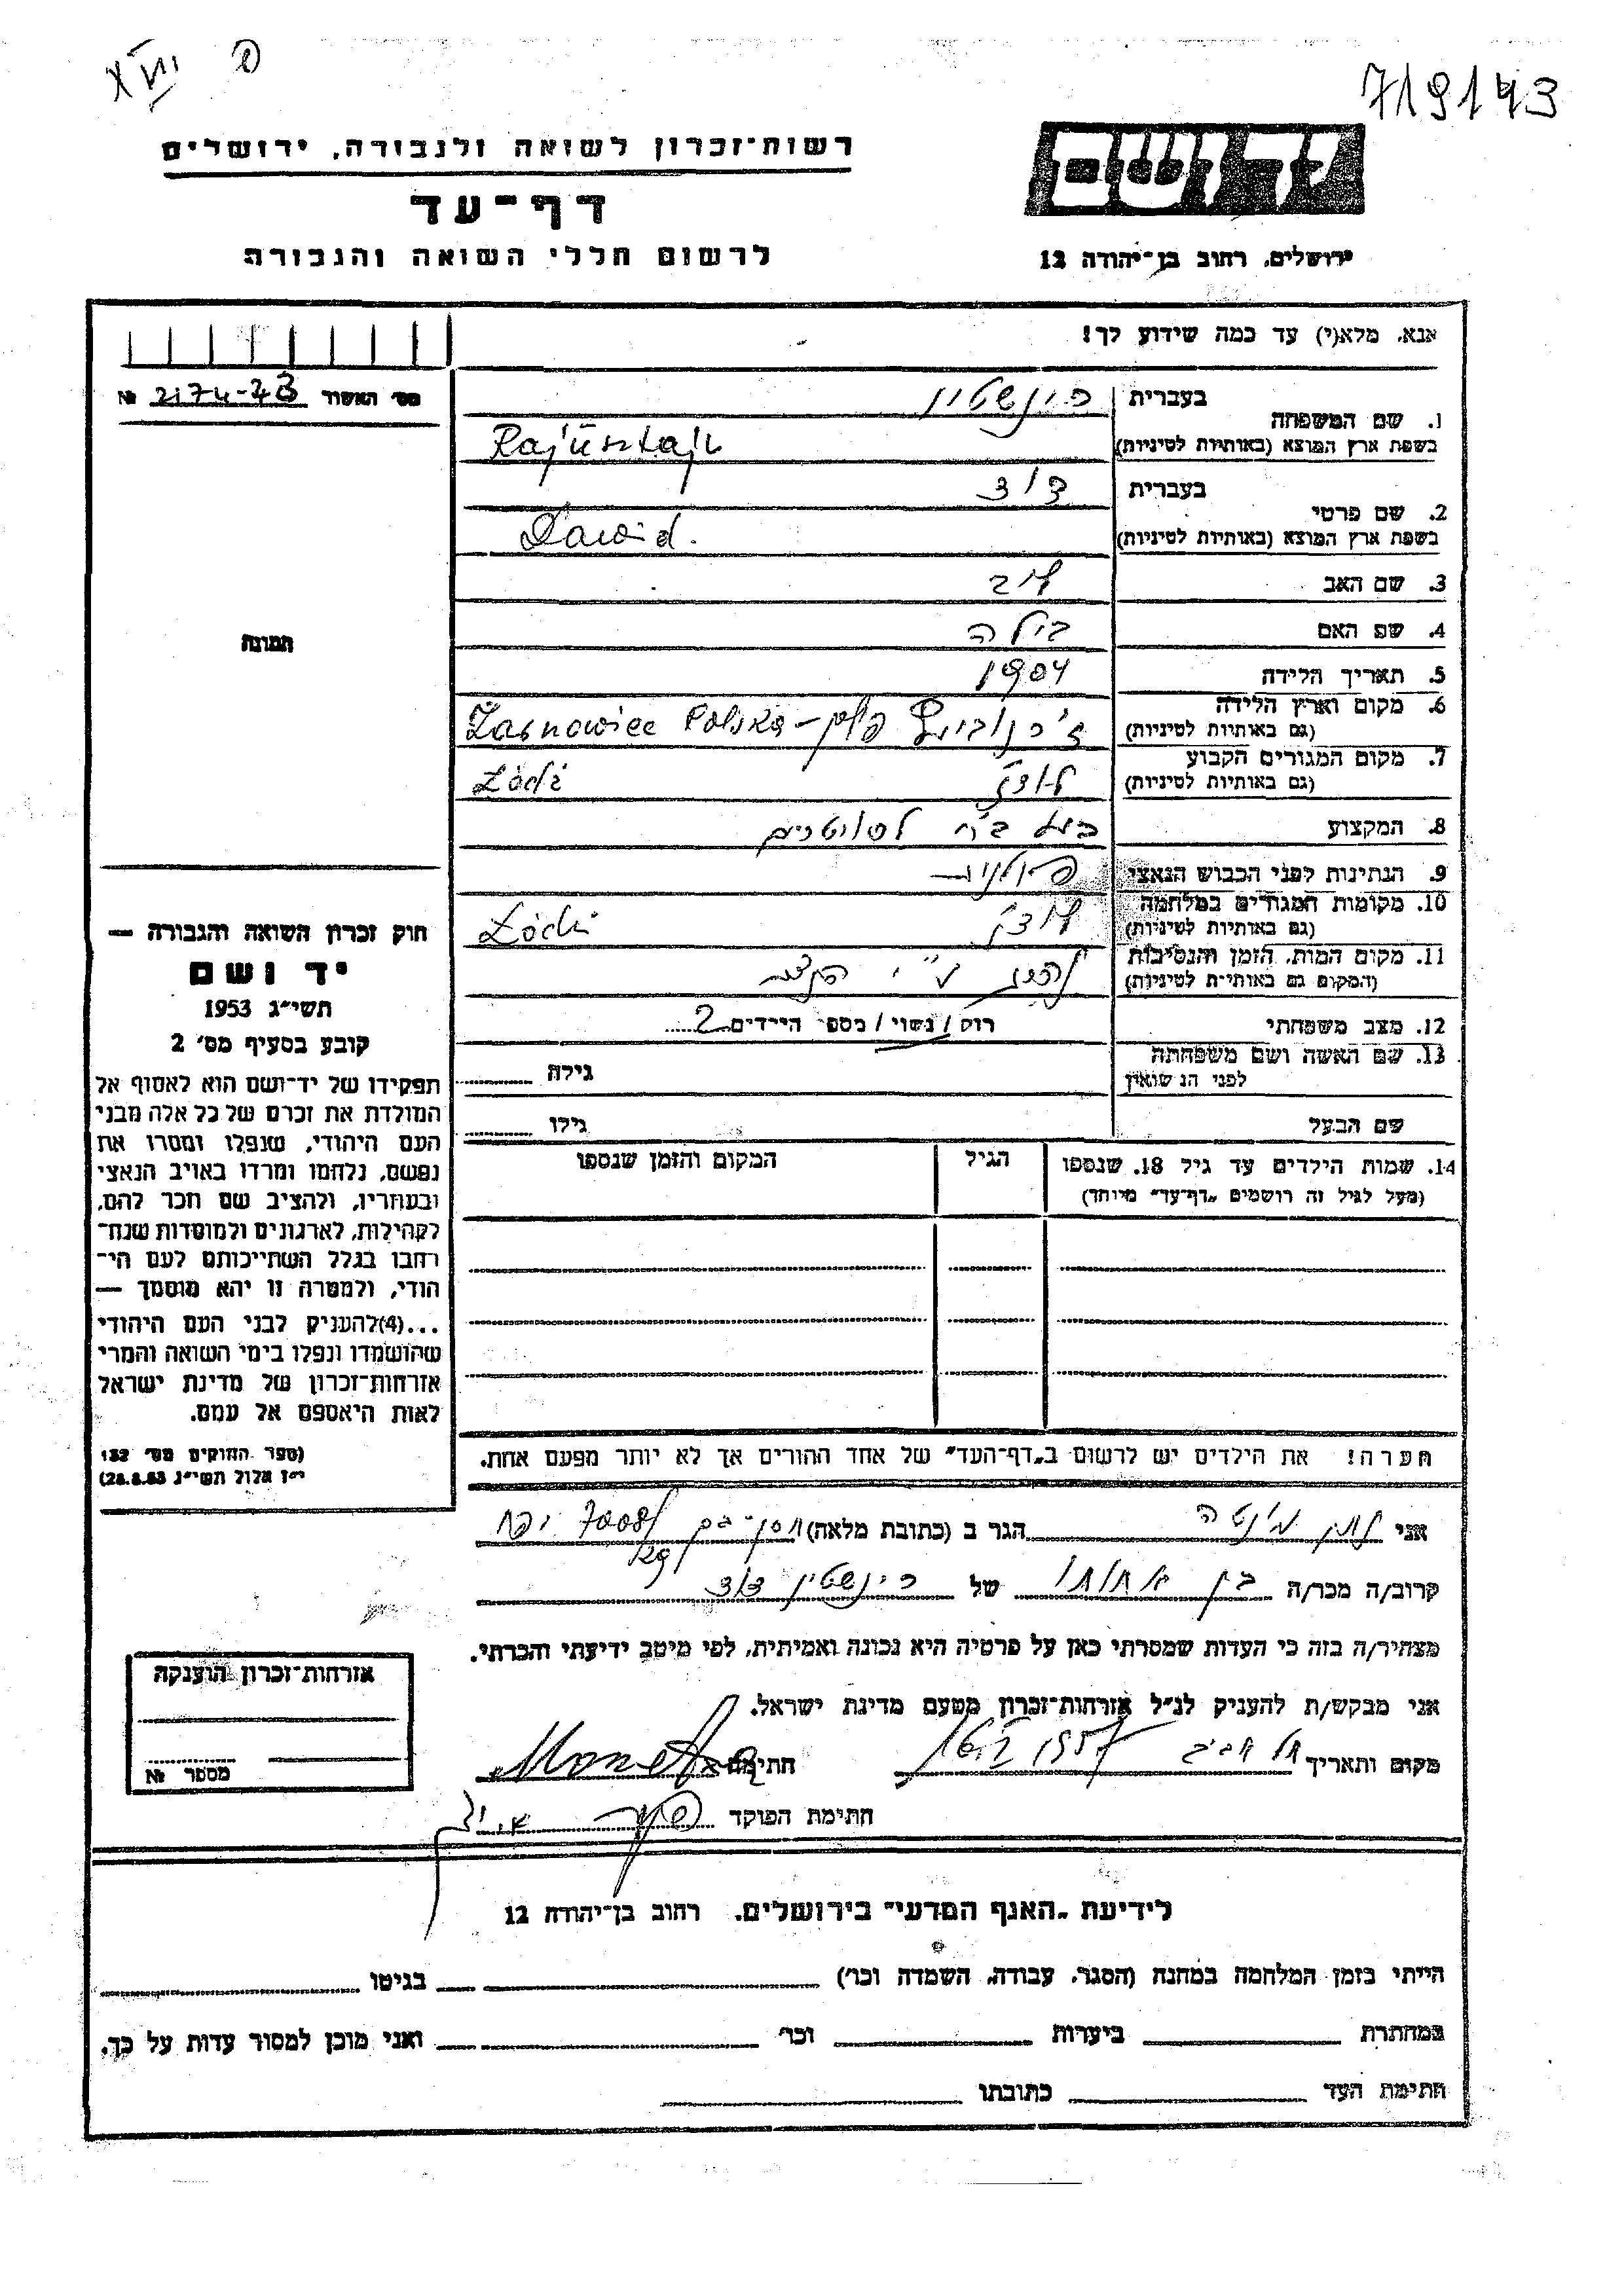 719143
XVII פ
יד ושם
ירושלים, רחוב בן־יהודה 12
רשות־זכרון לשואה ולגבורה, ירושלים
דף־עד
לרשום חללי השואה והגבורה
אנא, מלא(י) עד כמה שידוע לך!
מס׳ האשור 2174-43 №
1. שם המשפחה
בעברית ריינשטיין
בשפת ארץ המוצא (באותיות לטיניות) Rajnsztajn
2. שם פרטי
בעברית דוד
בשפת ארץ המוצא (באותיות לטיניות) Dawid.
3. שם האב לייב
4. שם האם ביילה
5. תאריך הלידה 1904
6. מקום וארץ הלידה
(גם באותיות לטיניות) פולין – Żarnowiec Polska
7. מקום המגורים הקבוע
(גם באותיות לטיניות) לודז׳ Łódź
8. המקצוע בעל בי״ח
9. הנתינות לפני הכבוש הנאצי פולנית
10. מקומות המגורים במלחמה
(גם באותיות לטיניות) לודז׳ Łódź
11. מקום המות, הזמן והנסיבות
(המקום גם באותיות לטיניות) ע״י
12. מצב משפחתי רווק/נשוי/מספר הילדים 2
13. שם האשה ושם משפחתה
לפני הנשואין גילה
שם הבעל גילו
14. שמות הילדים עד גיל 18, שנספו הגיל המקום והזמן שנספו
(מעל לגיל זה רושמים „דף־עד״ מיוחד)
הערה! את הילדים יש לרשום ב„דף־העד״ של אחד ההורים אך לא יותר מפעם אחת.
תמונה
חוק זכרון השואה והגבורה —
יד ושם
תשי״ג 1953
קובע בסעיף מס׳ 2
תפקידו של יד־ושם הוא לאסוף אל
המולדת את זכרם של כל אלה מבני
העם היהודי, שנפלו ומסרו את
נפשם, נלחמו ומרדו באויב הנאצי
ובעוזריו, ולהציב שם וזכר להם,
לקהילות, לארגונים ולמוסדות שנח־
רבו בגלל השתייכותם לעם הי־
הודי, ולמטרה זו יהא מוסמך —
...(4)להעניק לבני העם היהודי
שהושמדו ונפלו בימי השואה והמרי
אזרחות־זכרון של מדינת ישראל
לאות היאספם אל עמם.
(ספר החוקים מס׳ 132
י״ז אלול תשי״ג 28.8.53)
אני הגר ב (כתובת מלאה) יפו
קרוב/ה מכר/ה בן אחות של ריינשטיין דוד
מצהיר/ה בזה כי העדות שמסרתי כאן על פרטיה היא נכונה ואמיתית, לפי מיטב ידיעתי והכרתי.
אני מבקש/ת להעניק לנ״ל אזרחות־זכרון מטעם מדינת ישראל.
מקום ותאריך תל אביב 1957 חתימה Moneta
חתימת הפוקד
אזרחות־זכרון הוענקה
מספר №
לידיעת „האגף המדעי״ בירושלים, רחוב בן־יהודה 12
הייתי בזמן המלחמה במחנה (הסגר, עבודה, השמדה וכו׳) בגיטו
במחתרת ביערות וכו׳ ואני מוכן למסור עדות על כך.
חתימת העד כתובתו